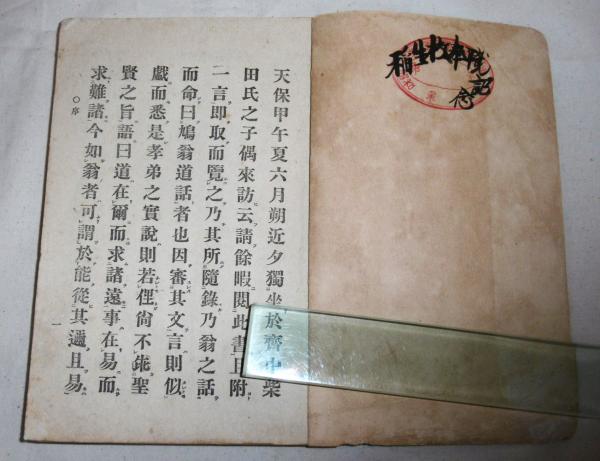 稲生牧本院
天保甲午夏六月朔近夕獨坐於齊中柴
田氏之子偶來訪云請餘暇閲此書且附
一言即取而覽之乃其所隨錄乃翁之話
而命曰鳩翁道話者也因審其文言則似
戯而悉是孝弟之實說則若俚尙不乖聖
賢之旨語曰道在爾而求諸遠事在易而
求難諸今如翁者可謂於能從其邇且易
○序
一